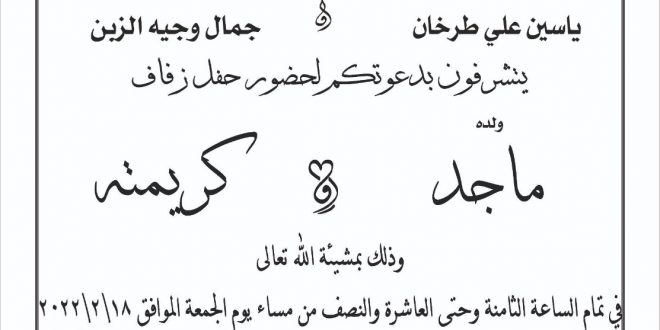 ياسين علي طرخان و جمال وجيه الزبن
يتشرفون بدعوتكم لحضور حفل زفاف
ولده
ماجد و كريمته
وذلك بمشيئة الله تعالى
في تمام الساعة الثامنة وحتى العاشرة والنصف من مساء يوم الجمعة الموافق ٢٠٢٢/٢/١٨